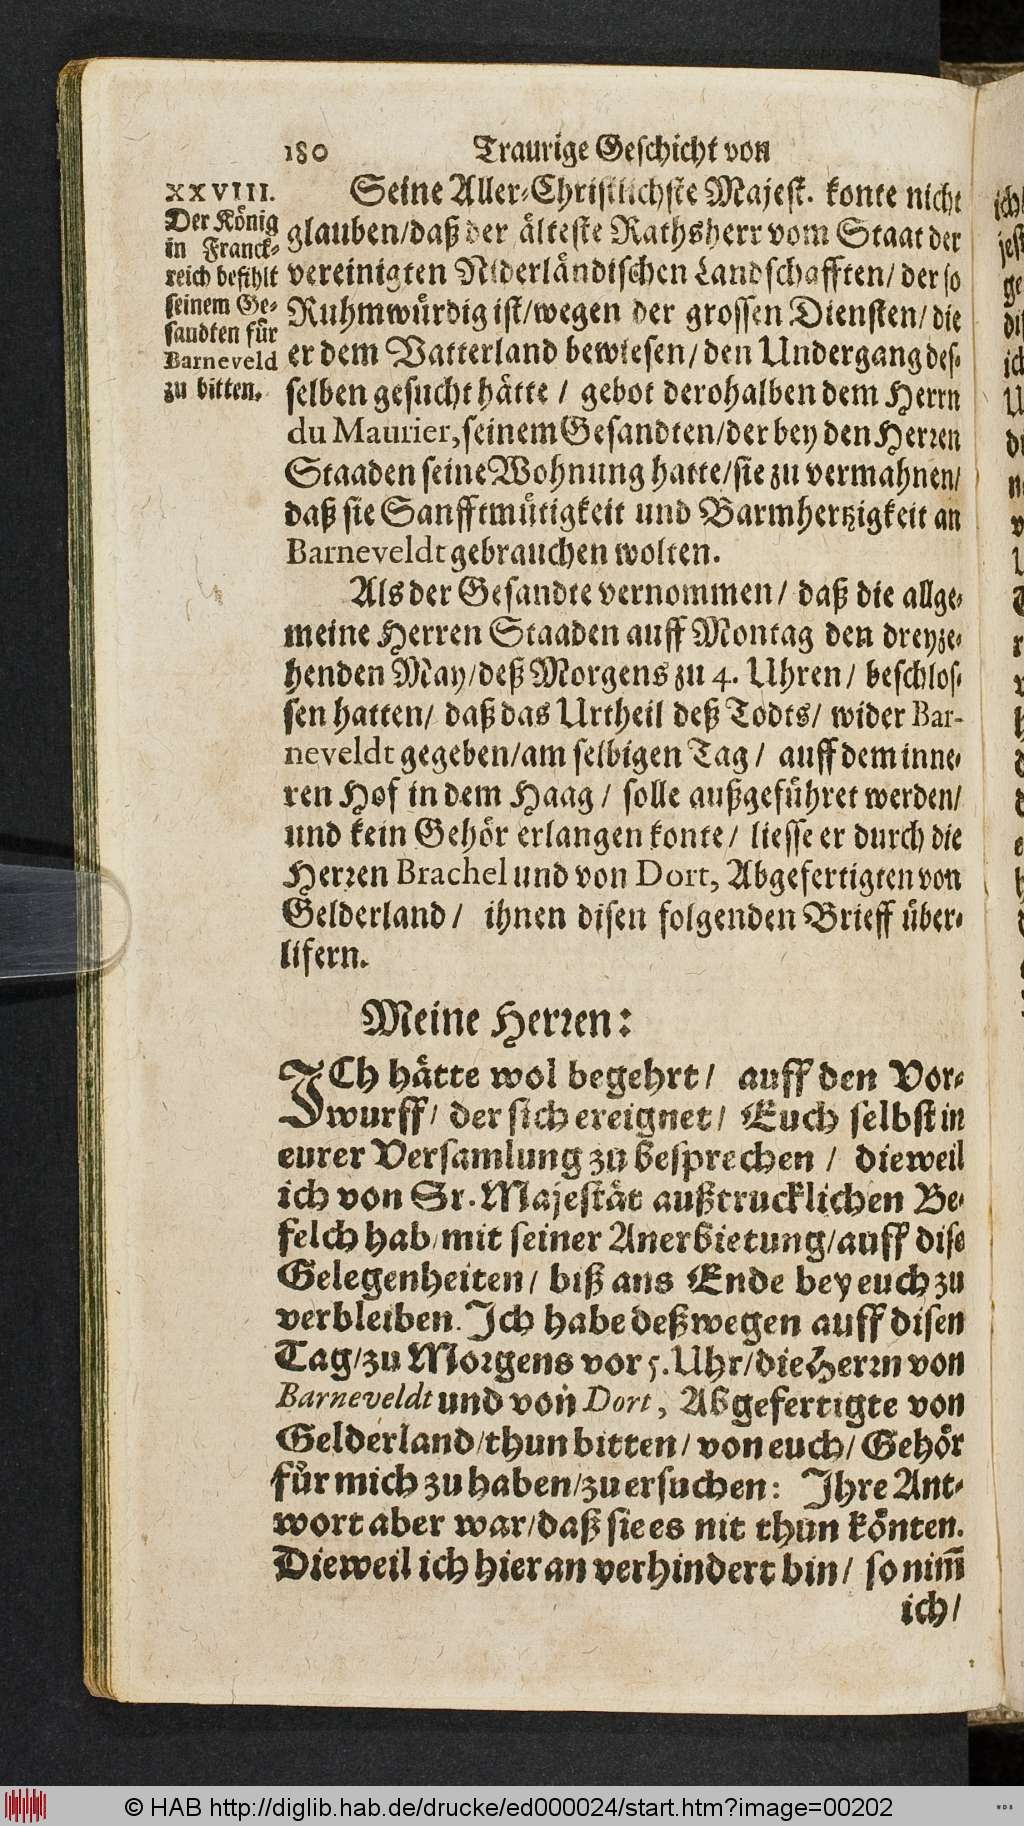 180 Traurige Geschicht von
XXVIII.
Der König
in Franck-
reich befihlt
seinem Ge-
sandten für
Barneveld
zu bitten.
Seine Aller-Christlichste Majest. konte nicht
glauben/daß der älteste Rathsherr vom Staat der
vereinigten Niderländischen Landschafften/ der so
Ruhmwürdig ist/wegen der grossen Diensten/ die
er dem Vatterland bewiesen/ den Undergang des-
selben gesucht hätte / gebot derohalben dem Herrn
du Maurier, seinem Gesandten/der bey den Herren
Staaden seine Wohnung hatte/sie zu vermahnen/
daß sie Sanfftmütigkeit und Barmhertzigkeit an
Barneveldt gebrauchen wolten.
Als der Gesandte vernommen/ daß die allge-
meine Herren Staaden auff Montag den dreyze-
henden May/deß Morgens zu 4. Uhren/ beschlos-
sen hatten/ daß das Urtheil deß Todts/ wider Bar-
neveldt gegeben/am selbigen Tag / auff dem inne-
ren Hof in dem Haag / solle außgeführet werden/
und kein Gehör erlangen konte/ liesse er durch die
Herren Brachel und von Dort, Abgefertigten von
Gelderland/ ihnen disen folgenden Brieff über-
lifern.
Meine Herren:
ICh hätte wol begehrt/ auff den Vor-
wurff/ der sich ereignet/ Euch selbst in
eurer Versamlung zu besprechen / dieweil
ich von Sr. Majestät außtrucklichen Be-
felch hab/mit seiner Anerbietung/auff dise
Gelegenheiten/ biß ans Ende bey euch zu
verbleiben. Ich habe deßwegen auff disen
Tag/zu Morgens vor 5. Uhr/die Herrn von
Barneveldt und von Dort, Abgefertigte von
Gelderland/thun bitten/ von euch/ Gehör
für mich zu haben/zu ersuchen: Ihre Ant-
wort aber war/daß sie es nit thun könten.
Dieweil ich hieran verhindert bin/ so nim̃
ich/
© HAB http://diglib.hab.de/drucke/ed000024/start.htm?image=00202